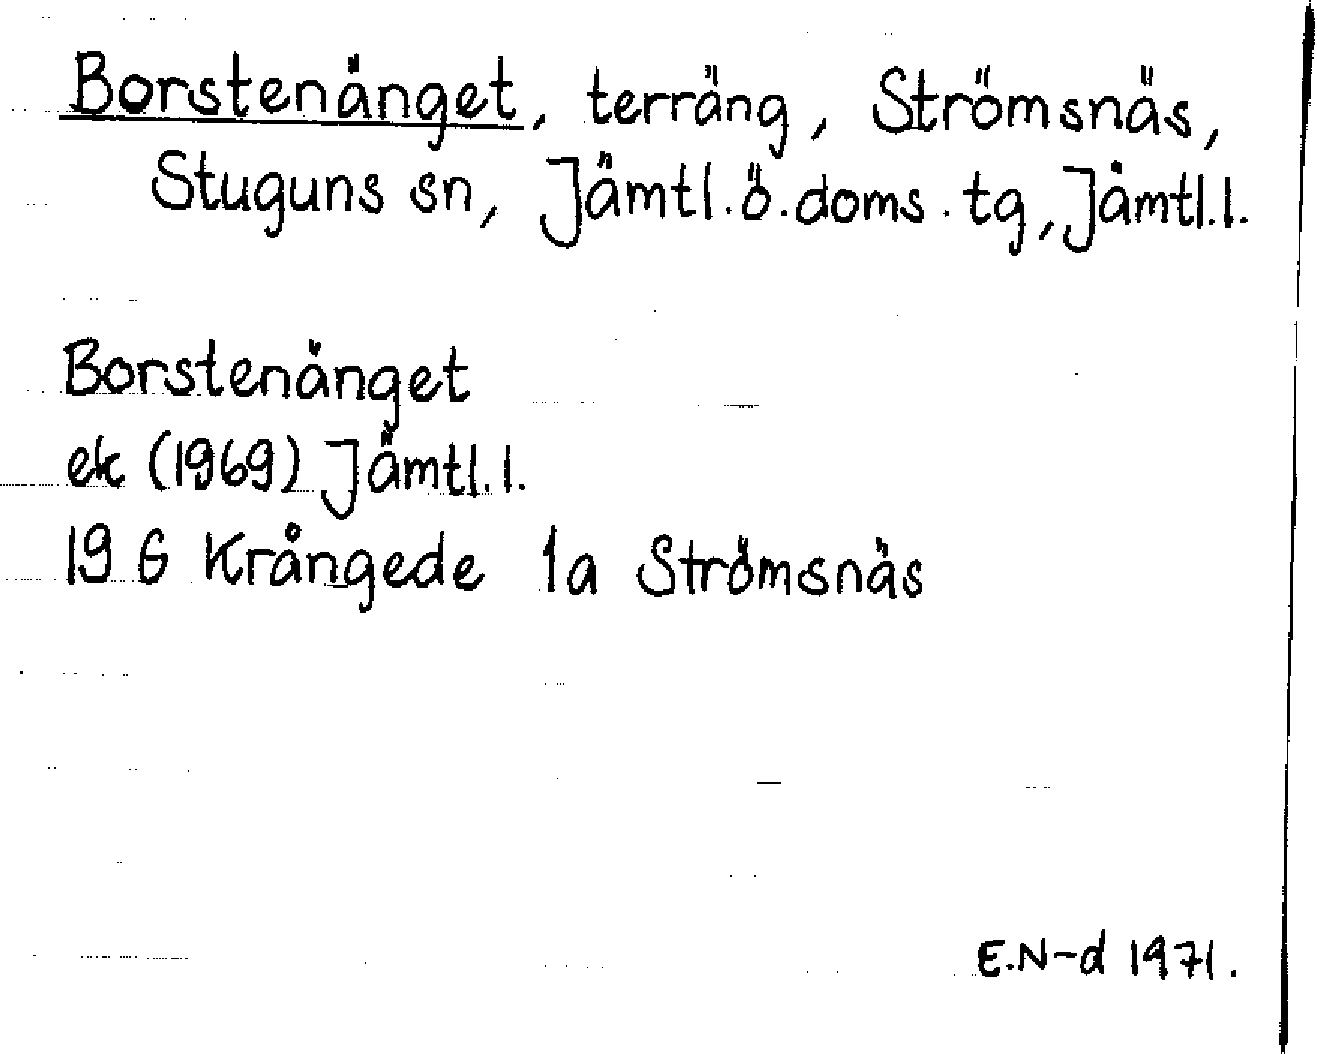 Borstenänget, terräng, Strömsnäs,
Stuguns sn, Jämtl.ö.doms.tg, Jämtl.l.
Borstenänget
ek (1969) Jämtl.l.
19 G Krångede 1a Strömsnäs
E.N-d 1971.